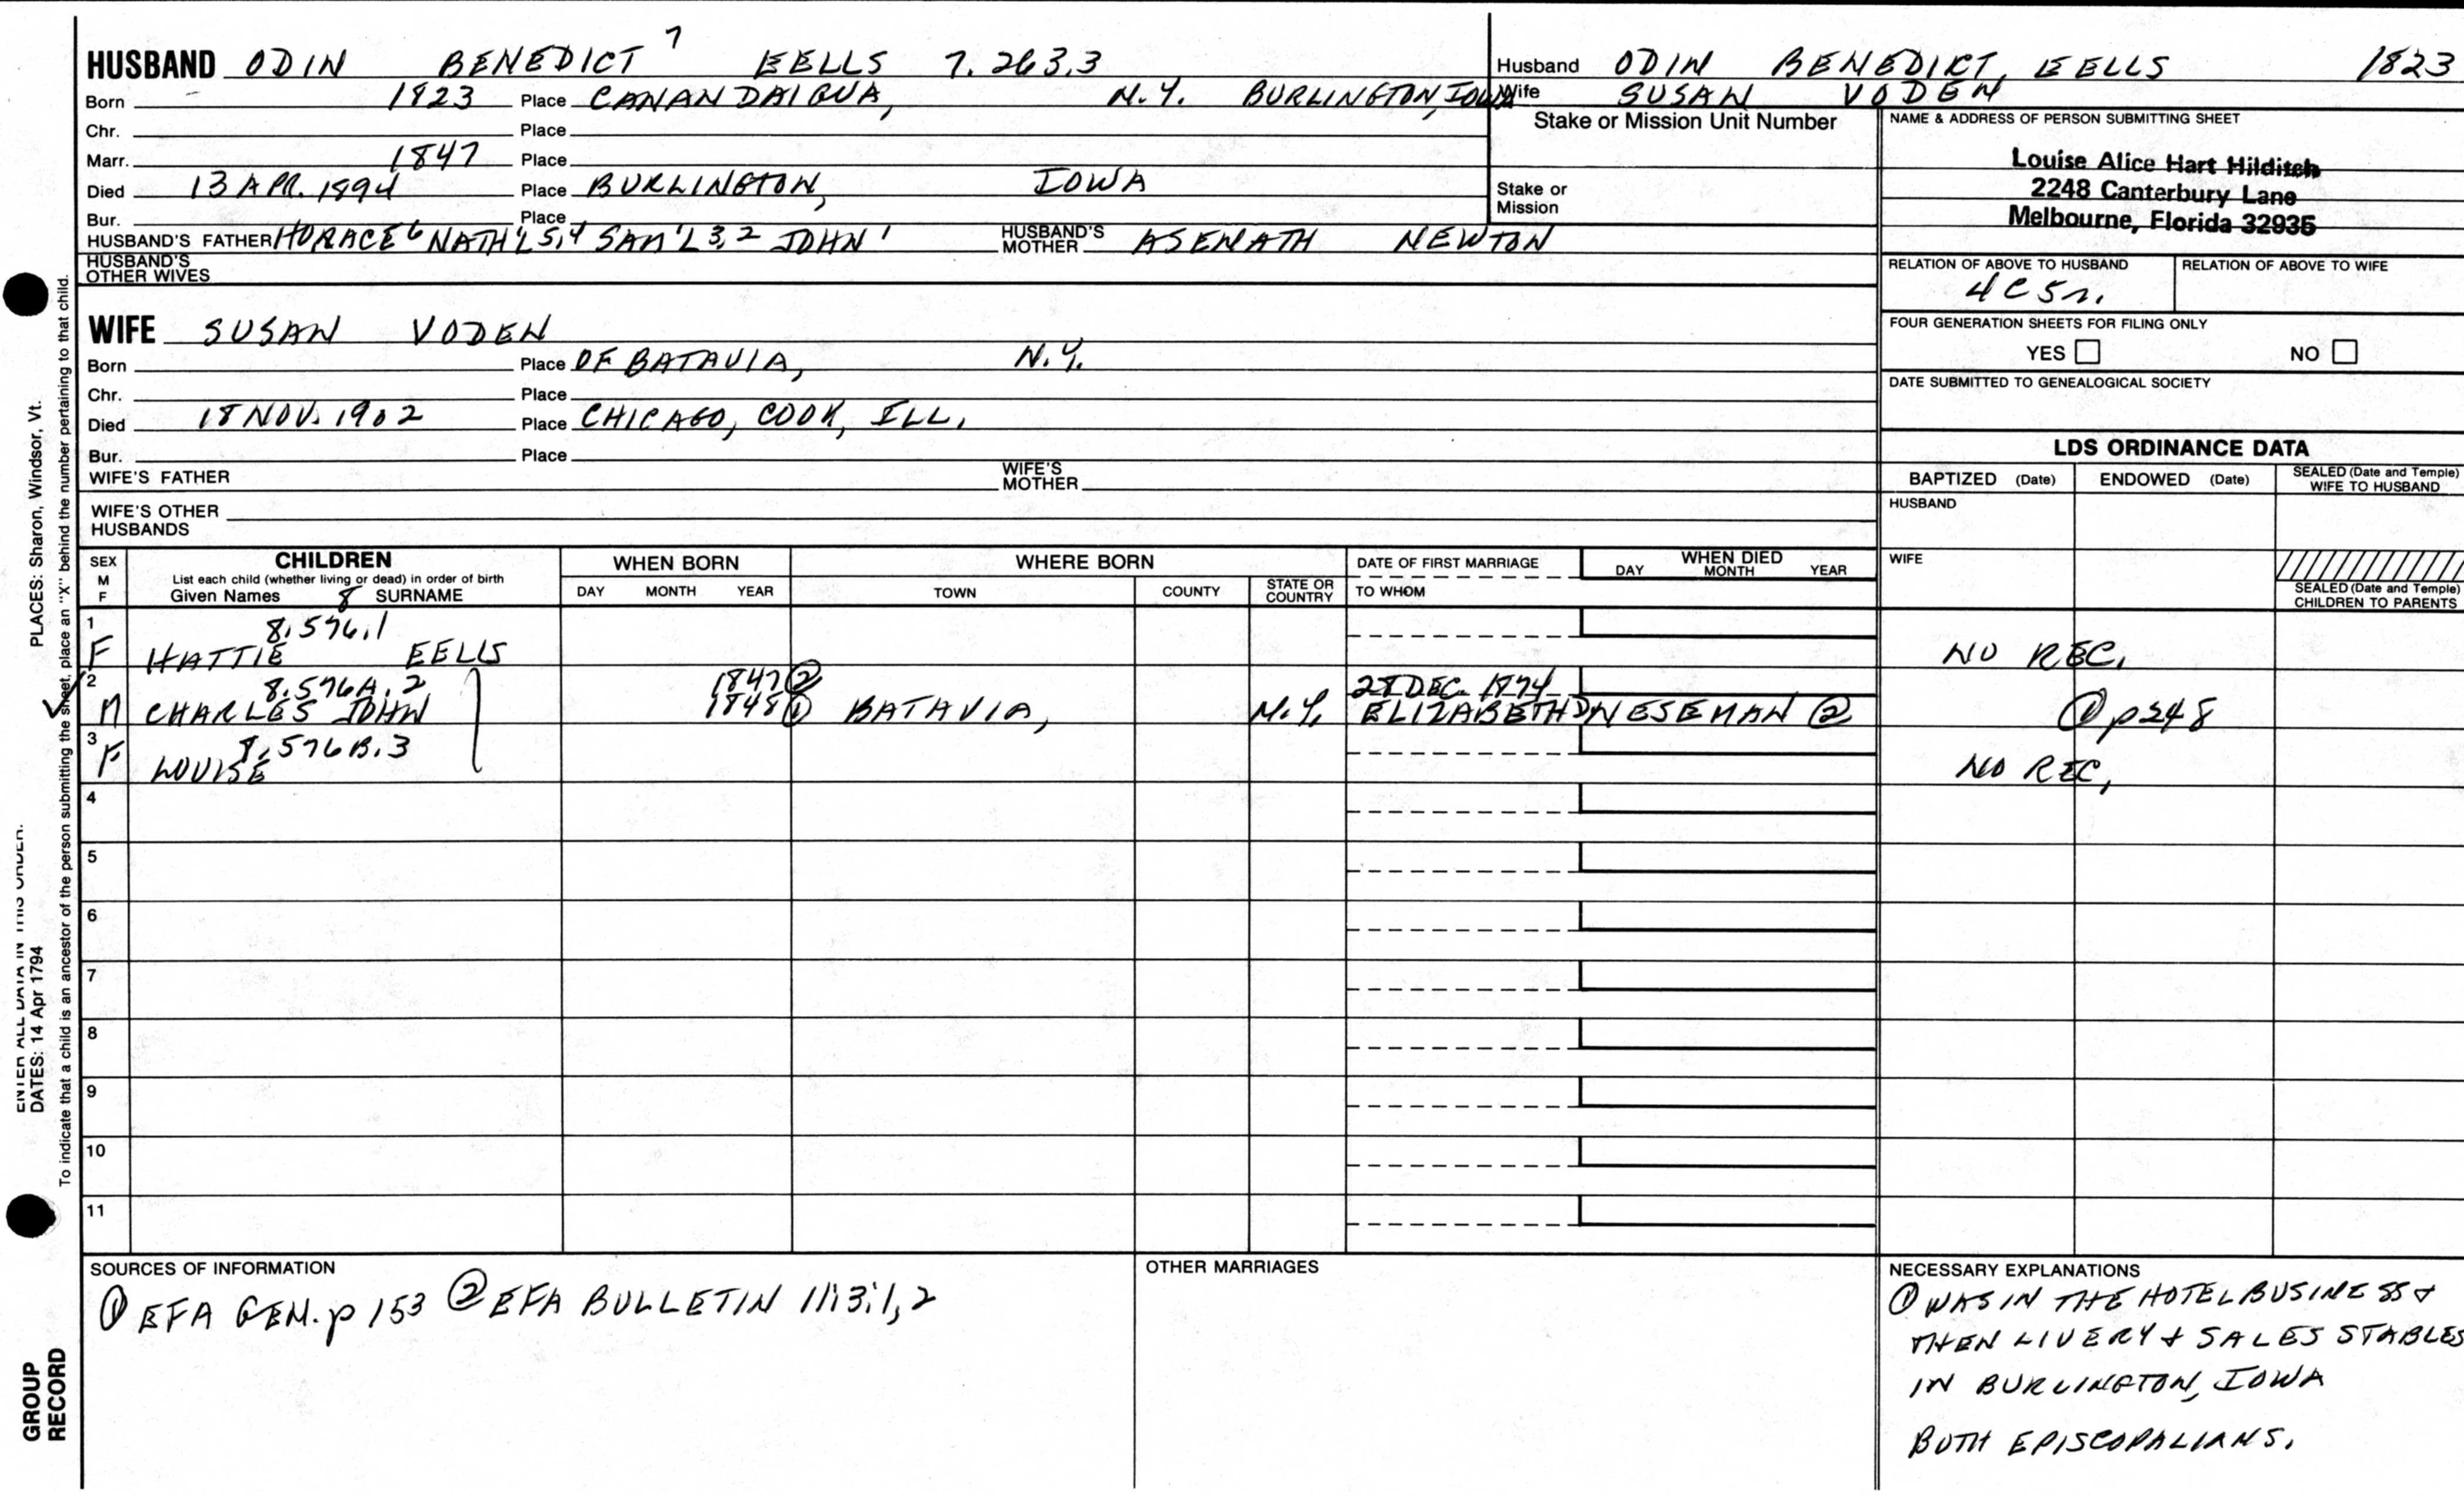 HUSBAND ODIN BENEDICT 7 EELLS 7.263.3
Born 1823 Place CANANDAIGUA, N.Y. BURLINGTON, IOWA
Chr. Place
Marr. 1847 Place
Died 13 APR. 1894 Place BURLINGTON, IOWA
Bur. Place
HUSBAND'S FATHER HORACE 6 NATH'L 5,4 SAM'L 3,2 JOHN 1 HUSBAND'S MOTHER ASENATH NEWTON
HUSBAND'S OTHER WIVES
Husband ODIN BENEDICT, EELLS 1823
Wife SUSAN VODEN
Stake or Mission Unit Number
Stake or Mission
NAME & ADDRESS OF PERSON SUBMITTING SHEET
Louise Alice Hart Hilditch
2248 Canterbury Lane
Melbourne, Florida 32935
RELATION OF ABOVE TO HUSBAND RELATION OF ABOVE TO WIFE
4C5r.
FOUR GENERATION SHEETS FOR FILING ONLY
YES NO
DATE SUBMITTED TO GENEALOGICAL SOCIETY
WIFE SUSAN VODEN
Born Place OF BATAVIA, N.Y.
Chr. Place
Died 18 NOV. 1902 Place CHICAGO, COOK, ILL.
Bur. Place
WIFE'S FATHER WIFE'S MOTHER
WIFE'S OTHER HUSBANDS
LDS ORDINANCE DATA
BAPTIZED (Date) ENDOWED (Date) SEALED (Date and Temple) WIFE TO HUSBAND
HUSBAND
WIFE
SEALED (Date and Temple) CHILDREN TO PARENTS
SEX M F CHILDREN WHEN BORN WHERE BORN DATE OF FIRST MARRIAGE WHEN DIED
List each child (whether living or dead) in order of birth
Given Names 8 SURNAME DAY MONTH YEAR TOWN COUNTY STATE OR COUNTRY TO WHOM DAY MONTH YEAR
1 8.576.1
F HATTIE EELLS NO REC.
2 8.576A.2 1847 ② 28 DEC. 1874
✓ M CHARLES JOHN 1848 ① BATAVIA, N.Y. ELIZABETH WESEMAN ② ① p248
3 8.576B.3
F LOUISE NO REC.
4
5
6
7
8
9
10
11
SOURCES OF INFORMATION
① EFA GEN. p 153 ② EFA BULLETIN 11:3:1,2
OTHER MARRIAGES
NECESSARY EXPLANATIONS
① WAS IN THE HOTEL BUSINESS &
THEN LIVERY & SALES STABLES
IN BURLINGTON, IOWA
BOTH EPISCOPALIANS.
ENTER ALL DATA IN THIS ORDER:
DATES: 14 Apr 1794 PLACES: Sharon, Windsor, Vt.
To indicate that a child is an ancestor of the person submitting the sheet, place an "X" behind the number pertaining to that child.
GROUP
RECORD